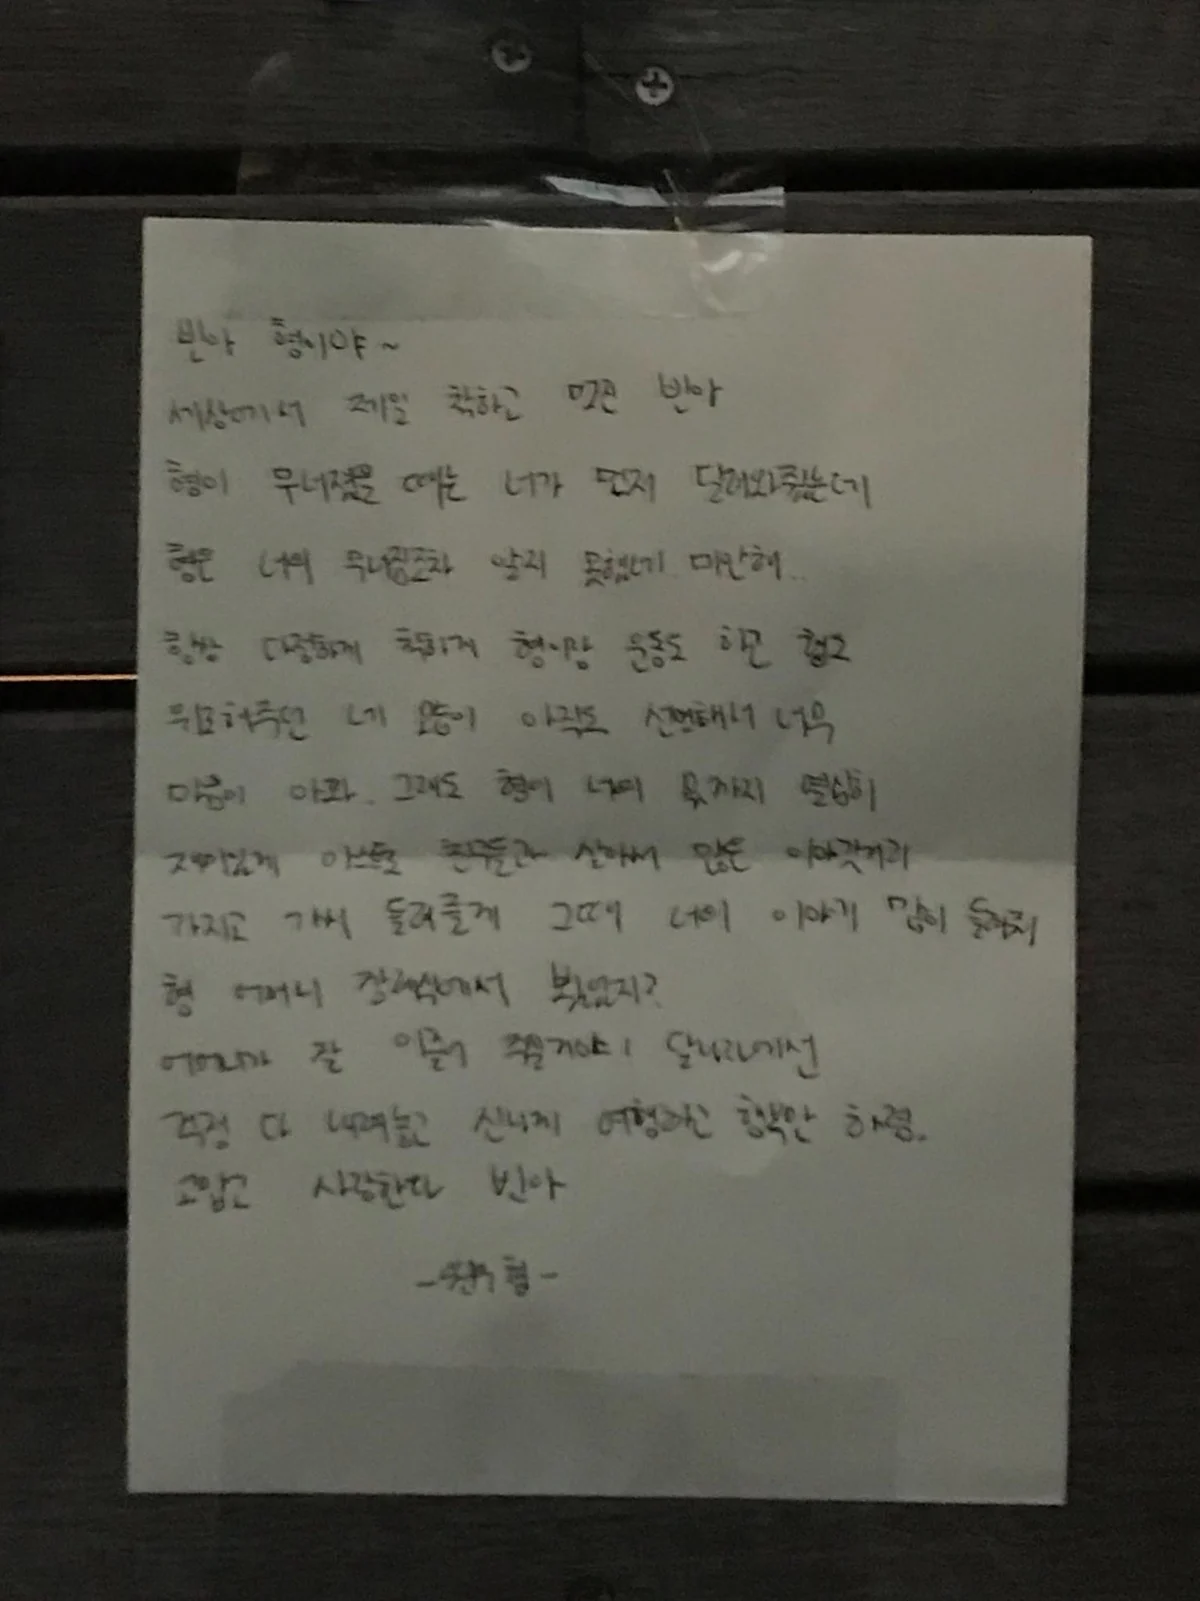 빈아 형이야~
세상에서 제일 착하고 멋진 빈아
형이 무너졌을 때는 너가 먼저 달려와줬는데
형은 너의 무너짐조차 알지 못했네. 미안해..
항상 다정하게 착하게 형이랑 운동도 하고
위로해주던 네 모습이 아직도 선명해서 너무
마음이 아파. 그래도 형이 너의 몫까지 열심히
재미있게 아스트로 친구들과 살아서 많은 이야깃거리
가지고 가서 들려줄게 그때 너의 이야기 많이 들려줘
형 어머니 장례식에서 봤었지?
어머니가 잘 이끌어 주실거야! 달나라에선
걱정 다 내려놓고 신나게 여행하고 행복만 하렴.
고맙고 사랑한다 빈아